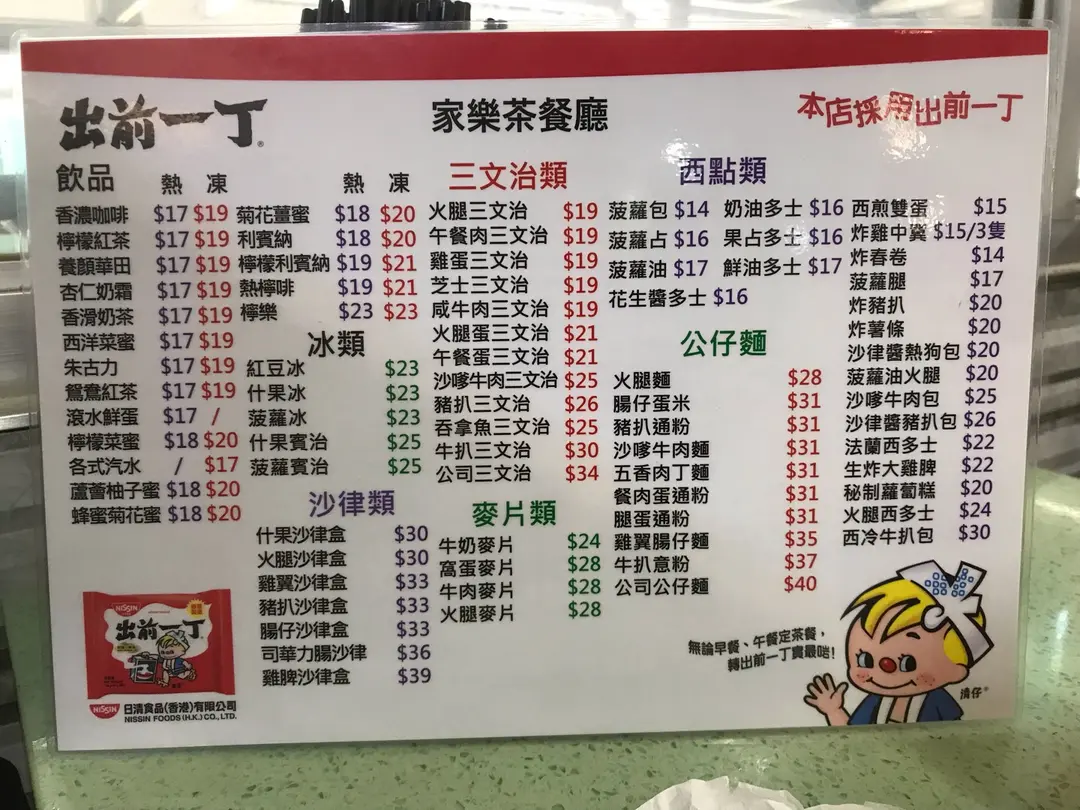 出前一丁
家樂茶餐廳
本店採用出前一丁
飲品 熱 凍
香濃咖啡 $17 $19
檸檬紅茶 $17 $19
養顏華田 $17 $19
杏仁奶霜 $17 $19
香滑奶茶 $17 $19
西洋菜蜜 $17 $19
朱古力 $17 $19
鴛鴦紅茶 $17 $19
滾水鮮蛋 $17 /
檸檬菜蜜 $18 $20
各式汽水 / $17
蘆薈柚子蜜 $18 $20
蜂蜜菊花蜜 $18 $20
熱 凍
菊花薑蜜 $18 $20
利賓納 $18 $20
檸檬利賓納 $19 $21
熱檸啡 $19 $21
檸樂 $23 $23
冰類
紅豆冰 $23
什果冰 $23
菠蘿冰 $23
什果賓治 $25
菠蘿賓治 $25
沙律類
什果沙律盒 $30
火腿沙律盒 $30
雞翼沙律盒 $33
豬扒沙律盒 $33
腸仔沙律盒 $33
司華力腸沙律 $36
雞脾沙律盒 $39
三文治類
火腿三文治 $19
午餐肉三文治 $19
雞蛋三文治 $19
芝士三文治 $19
咸牛肉三文治 $19
火腿蛋三文治 $21
午餐蛋三文治 $21
沙嗲牛肉三文治 $25
豬扒三文治 $26
吞拿魚三文治 $25
牛扒三文治 $30
公司三文治 $34
麥片類
牛奶麥片 $24
窩蛋麥片 $28
牛肉麥片 $28
火腿麥片 $28
西點類
菠蘿包 $14
菠蘿占 $16
菠蘿油 $17
花生醬多士 $16
奶油多士 $16
果占多士 $16
鮮油多士 $17
西煎雙蛋 $15
炸雞中翼 $15/3隻
炸春卷 $14
菠蘿腿 $17
炸豬扒 $20
炸薯條 $20
沙律醬熱狗包 $20
菠蘿油火腿 $20
沙嗲牛肉包 $25
沙律醬豬扒包 $26
法蘭西多士 $22
生炸大雞脾 $22
秘制蘿蔔糕 $20
火腿西多士 $24
西冷牛扒包 $30
公仔麵
火腿麵 $28
腸仔蛋米 $31
豬扒通粉 $31
沙嗲牛肉麵 $31
五香肉丁麵 $31
餐肉蛋通粉 $31
腿蛋通粉 $31
雞翼腸仔麵 $35
牛扒意粉 $37
公司公仔麵 $40
NISSIN
出前一丁
NISSIN 日清食品(香港)有限公司
NISSIN FOODS (H.K.) CO., LTD.
無論早餐、午餐定茶餐，
轉出前一丁實最啱！
清仔®